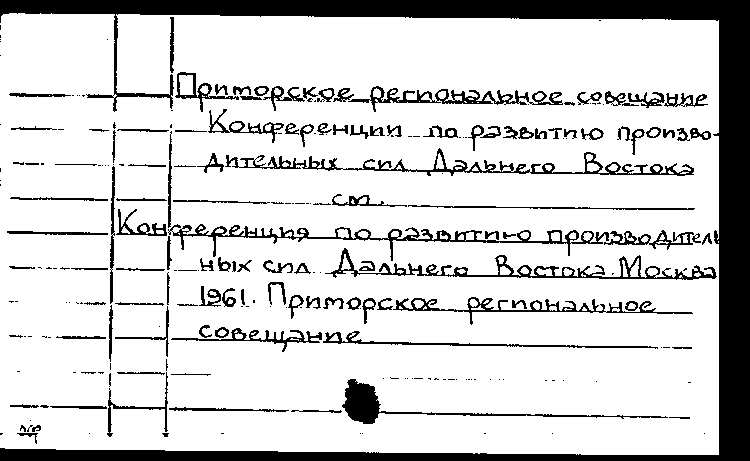 Приморское региональное совещание
Конференции по развитию произво-
дительных сил Дальнего Востока
см.
Конференция по развитию производитель
ных сил Дальнего Востока. Москва
1961. Приморское региональное
совещание.